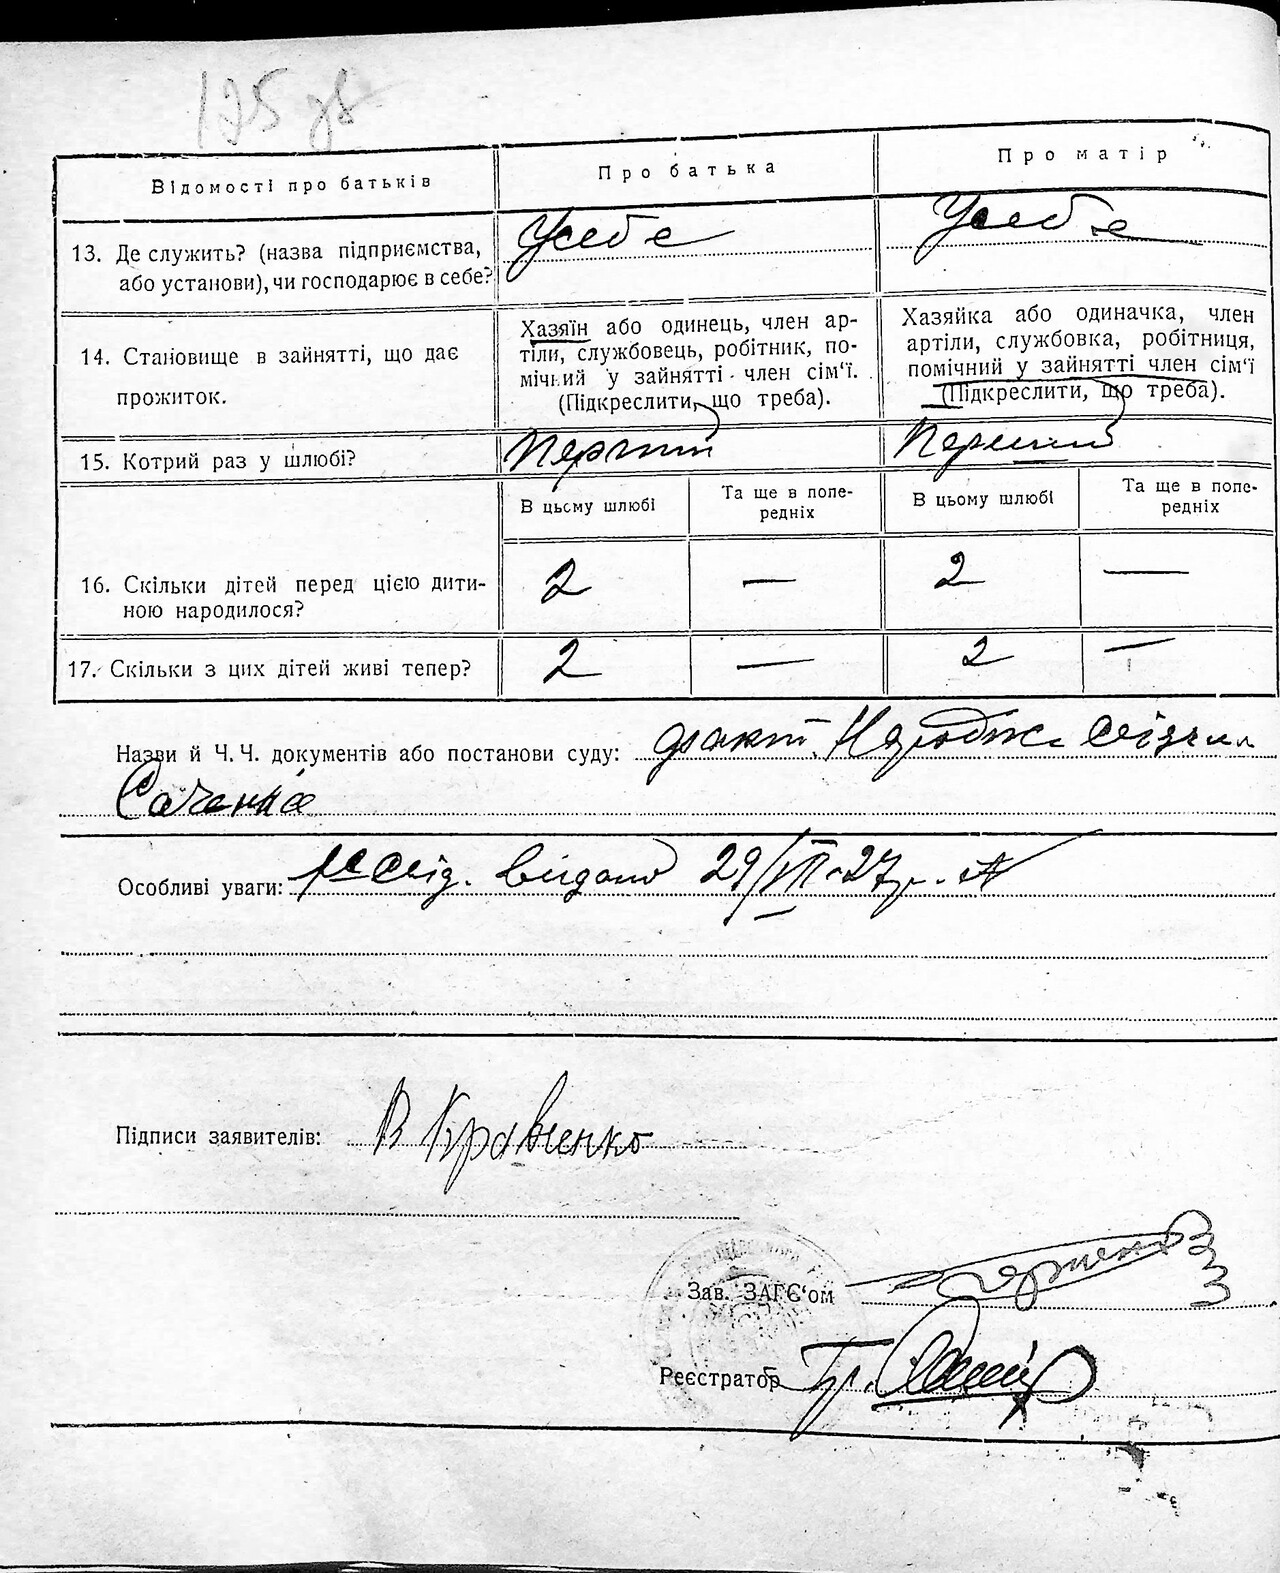 125 зв
Відомості про батьків
Про батька
Про матір
13. Де служить? (назва підприємства,
або установи), чи господарює в себе?
У себе
У себе
14. Становище в зайнятті, що дає
прожиток.
Хазяїн або одинець, член ар-
тіли, службовець, робітник, по-
мічний у зайнятті член сім'ї.
(Підкреслити, що треба).
Хазяйка або одиначка, член
артіли, службовка, робітниця,
помічний у зайнятті член сім'ї
(Підкреслити, що треба).
15. Котрий раз у шлюбі?
Перший
Перший
В цьому шлюбі
Та ще в попе-
редніх
В цьому шлюбі
Та ще в попе-
редніх
16. Скільки дітей перед цією дити-
ною народилося?
2 — 2 —
17. Скільки з цих дітей живі тепер?
2 — 2 —
Назви й Ч. Ч. документів або постанови суду: факт Народж.
Особливі уваги: видано 29/VII-27р.
Підписи заявителів: В Кравченко
Зав. ЗАГС'ом
Реєстратор